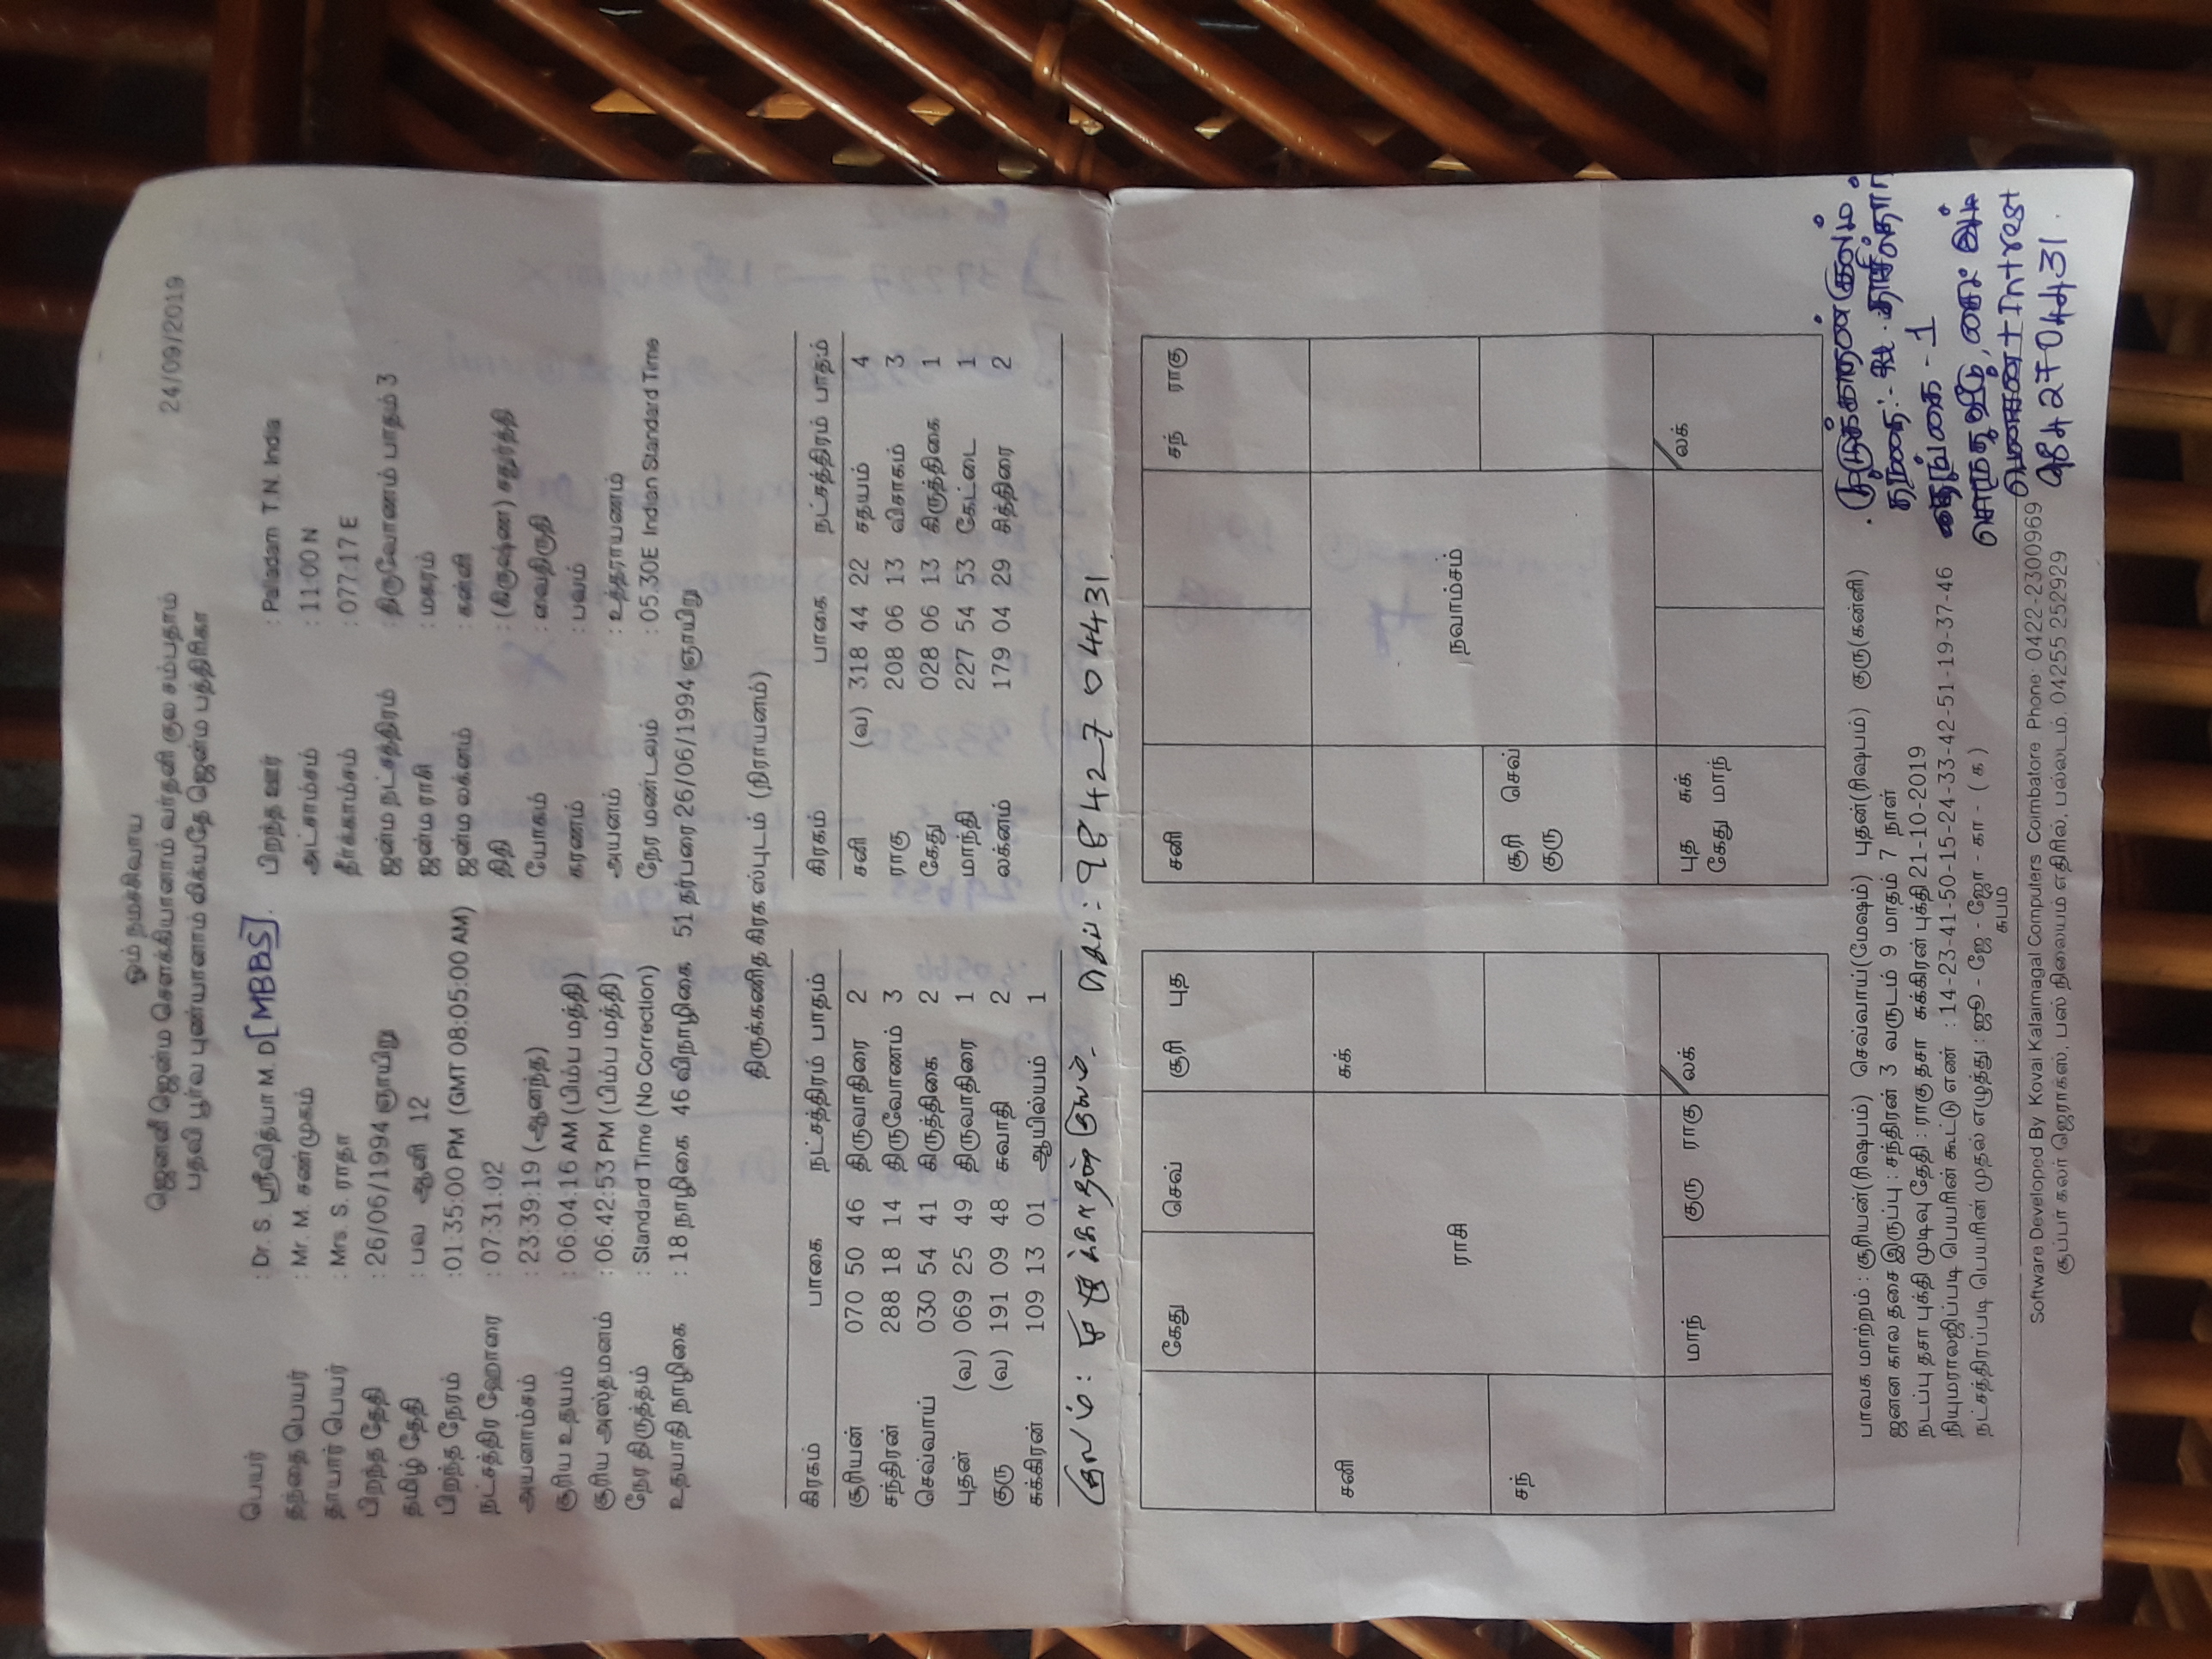 ஓம் நமசிவாய
ஜெனனீ ஜென்ம சௌக்கியானாம் வர்தனி குல சம்பதாம்
பதவி பூர்வ புண்யானாம் லிக்யதே ஜென்ம பத்திரிகா
24/09/2019
பெயர் : Dr. S. ஸ்ரீவித்யா M. D [MBBS].
தந்தை பெயர் : Mr. M. சண்முகம்
தாயார் பெயர் : Mrs. S. ராதா
பிறந்த தேதி : 26/06/1994 ஞாயிறு
தமிழ் தேதி : பவ ஆனி 12
பிறந்த நேரம் : 01:35:00 PM (GMT 08:05:00 AM)
நட்சத்திர ஹோரை : 07:31:02
அயனாம்சம் : 23:39:19 (ஆனந்த)
சூரிய உதயம் : 06:04:16 AM (பிம்ப மத்தி)
சூரிய அஸ்தமனம் : 06:42:53 PM (பிம்ப மத்தி)
நேர திருத்தம் : Standard Time (No Correction)
உதயாதி நாழிகை : 18 நாழிகை 46 விநாழிகை 51 தர்பரை 26/06/1994 ஞாயிறு
பிறந்த ஊர் : Palladam T.N. India
அட்சாம்சம் : 11:00 N
தீர்க்காம்சம் : 077:17 E
ஜன்ம நட்சத்திரம் : திருவோணம் பாதம் 3
ஜன்ம ராசி : மகரம்
ஜன்ம லக்னம் : கன்னி
திதி : (கிருஷ்ண) சதுர்த்தி
யோகம் : வைதிருதி
கரணம் : பவம்
அயனம் : உத்தராயணம்
நேர மண்டலம் : 05.30E Indian Standard Time
திருக்கணித கிரகஸ்புடம் (நிராயனம்)
கிரகம் பாகை நட்சத்திரம் பாதம்
சூரியன் 070 50 46 திருவாதிரை 2
சந்திரன் 288 18 14 திருவோணம் 3
செவ்வாய் 030 54 41 கிருத்திகை 2
புதன் (வ) 069 25 49 திருவாதிரை 1
குரு (வ) 191 09 48 சுவாதி 2
சுக்கிரன் 109 13 01 ஆயில்யம் 1
கிரகம் பாகை நட்சத்திரம் பாதம்
சனி (வ) 318 44 22 சதயம் 4
ராகு 208 06 13 விசாகம் 3
கேது 028 06 13 கிருத்திகை 1
மாந்தி 227 54 53 கேட்டை 1
லக்னம் 179 04 29 சித்திரை 2
குலம் : குலம். செல் : 98427 04431
கேது செவ் சூரி புத
சனி சுக்
ராசி
சந்
மாந் குரு ராகு லக்
சனி சந் ராகு
நவாம்சம்
சூரி செவ்
குரு
புத சுக்
கேது மாந்
லக்
பாவக மாற்றம் : சூரியன்(ரிஷபம்) செவ்வாய்(மேஷம்) புதன்(ரிஷபம்) குரு(கன்னி)
ஜனன கால தசை இருப்பு : சந்திரன் 3 வருடம் 9 மாதம் 7 நாள்
நடப்பு தசா புக்தி முடிவு தேதி : ராகு தசா சுக்கிரன் புக்தி 21-10-2019
நியுமராலஜிப்படி பெயரின் கூட்டு எண் : 14-23-41-50-15-24-33-42-51-19-37-46
நட்சத்திரப்படி பெயரின் முதல் எழுத்து : ஜூ - ஜே - ஜோ - கா - ( க )
சுபம்
குலம்
தந்தை:-
தங்கை - 1
சொந்த வீடு,
+ Intrest
98427 04431.
Software Developed By Kovai Kalaimagal Computers Coimbatore Phone: 0422-2300969
சூப்பர் கலர் ஜெராக்ஸ், பஸ் நிலையம் எதிரில், பல்லடம், 04255 252929